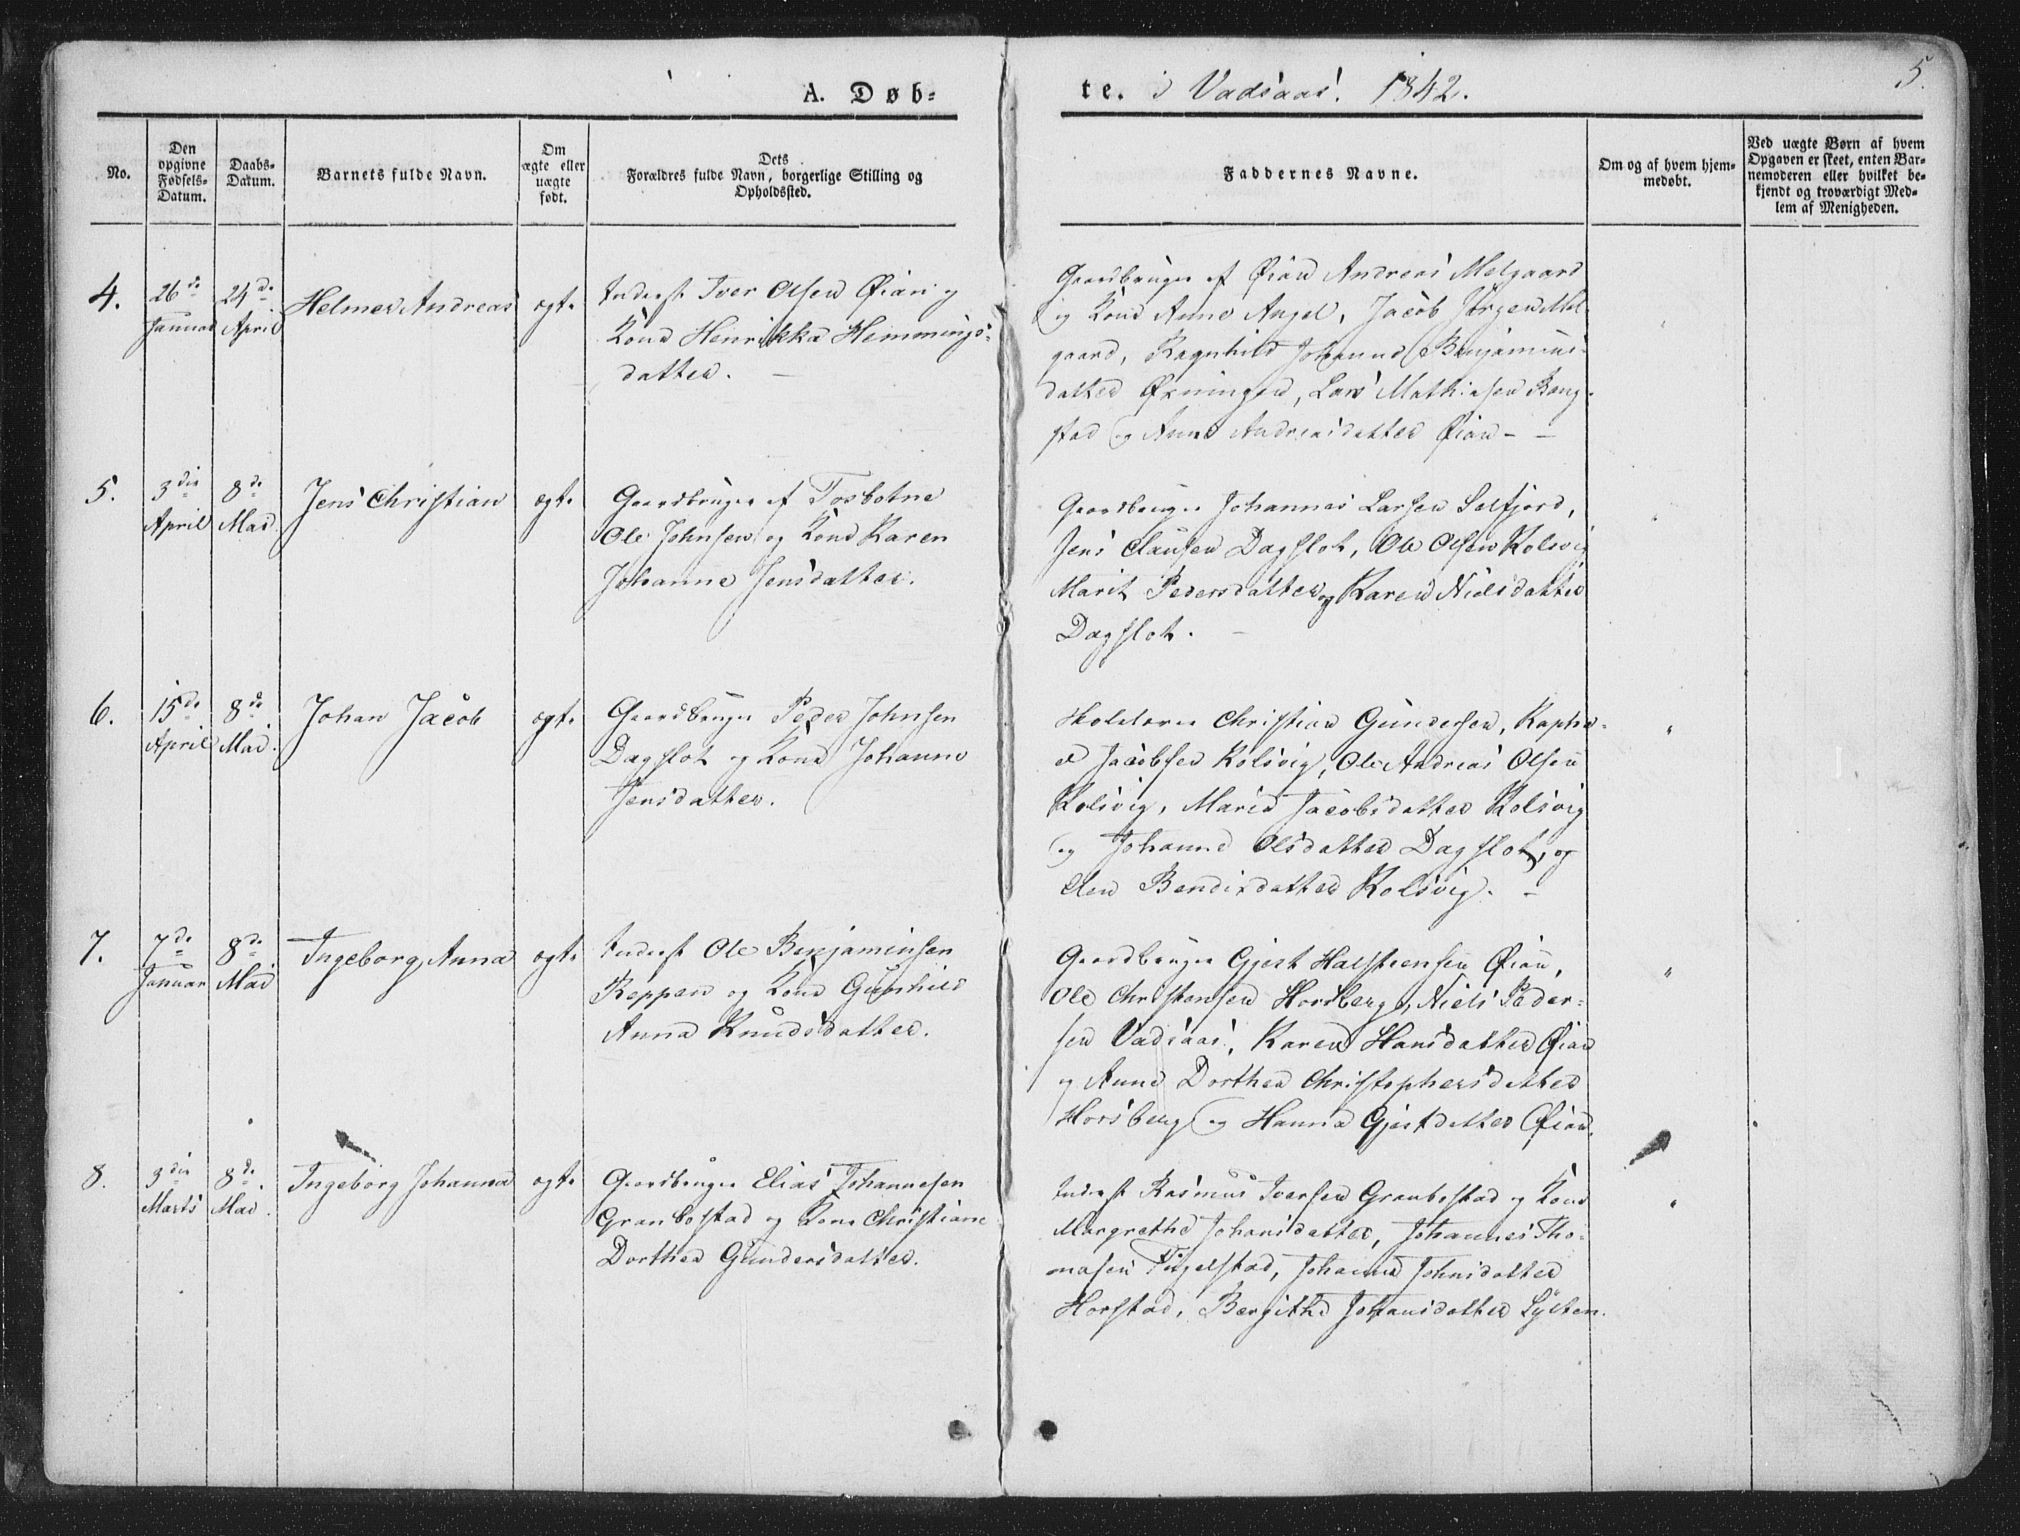 A. Døb=
te. i Vadsaas. 1842.
5.
No.
Den opgivne Fødsels-Datum.
Daabs-Datum.
Barnets fulde Navn.
Om ægte eller uægte født.
Dets Forældres fulde Navn, borgerlige Stilling og Opholdssted.
Faddernes Navne.
Om og af hvem hjemmedøbt.
Ved uægte Børn af hvem Opgaven er skeet, enten Barnemoderen eller hvilket bekjendt og troværdigt Medlem af Menigheden.
4.
26de Januar
24de April
Helmer Andreas
ægte
Inderst Iver Olsen Øian og
Kone Henrikka Hemmings-
datter.
Gaardbruger af Øian Andreas Melgaard
og Kone Anne Angel, Jacob Jørgen Mel-
gaard, Ragnhild Johanne Benjamins-
datter Øxningen, Lars Mathiesen Bang-
stad og Anne Andreasdatter Øian
5.
3die April
8de Mai
Jens Christian
ægte
Gaardbruger af Tosbotne
Ole Johnsen og Kone Karen
Johanne Jensdatter.
Gaardbruger Johannes Larsen Solfjord,
Jens Clausen Dagslot, Ole Olsen Kolsvig
Marit Pedersdatter og Karen Nielsdatter
Dagslot.
6.
15de April
8de Mai
Johan Jacob
ægte
Gaardbruger Peder Johnsen
Dagslot og Kone Johanne
Jensdatter.
"
Skolelærer Christian Gundersen, Rapha-
el Jacobsen Kolsvig, Ole Andreas Olsen
Kolsvig, Maria Jacobsdatter Kolsvig
og Johanne Olsdatter Dagslot, og
Elen Bendixdatter Kolsvig.
7.
7de Januar
8de Mai
Ingeborg Anna
ægte
Inderst Ole Benjaminsen
Reppen og Kone Gunhild
Anna Knudsdatter.
"
Gaardbruger Gjert Halsteensen Øian,
Ole Christensen Horsberg, Niels Peder-
sen Vadsaas, Karen Hansdatter Øian
og Anne Dorthea Christophersdatter
Horsberg og Hanna Gjertsdatter Øian.
8.
3die Marts
8de Mai
Ingeborg Johanna
ægte
Gaardbruger Elias Johannesen
Granbostad og Kone Christiane
Dorthea Gundersdatter.
"
Inderst Rasmus Iversen Granbostad og Kone
Margrethe Johansdatter, Johannes Tho-
masen Tilgelstad, Johanna Johnsdatter
Horstad, Bergithe Johansdatter Sylten.